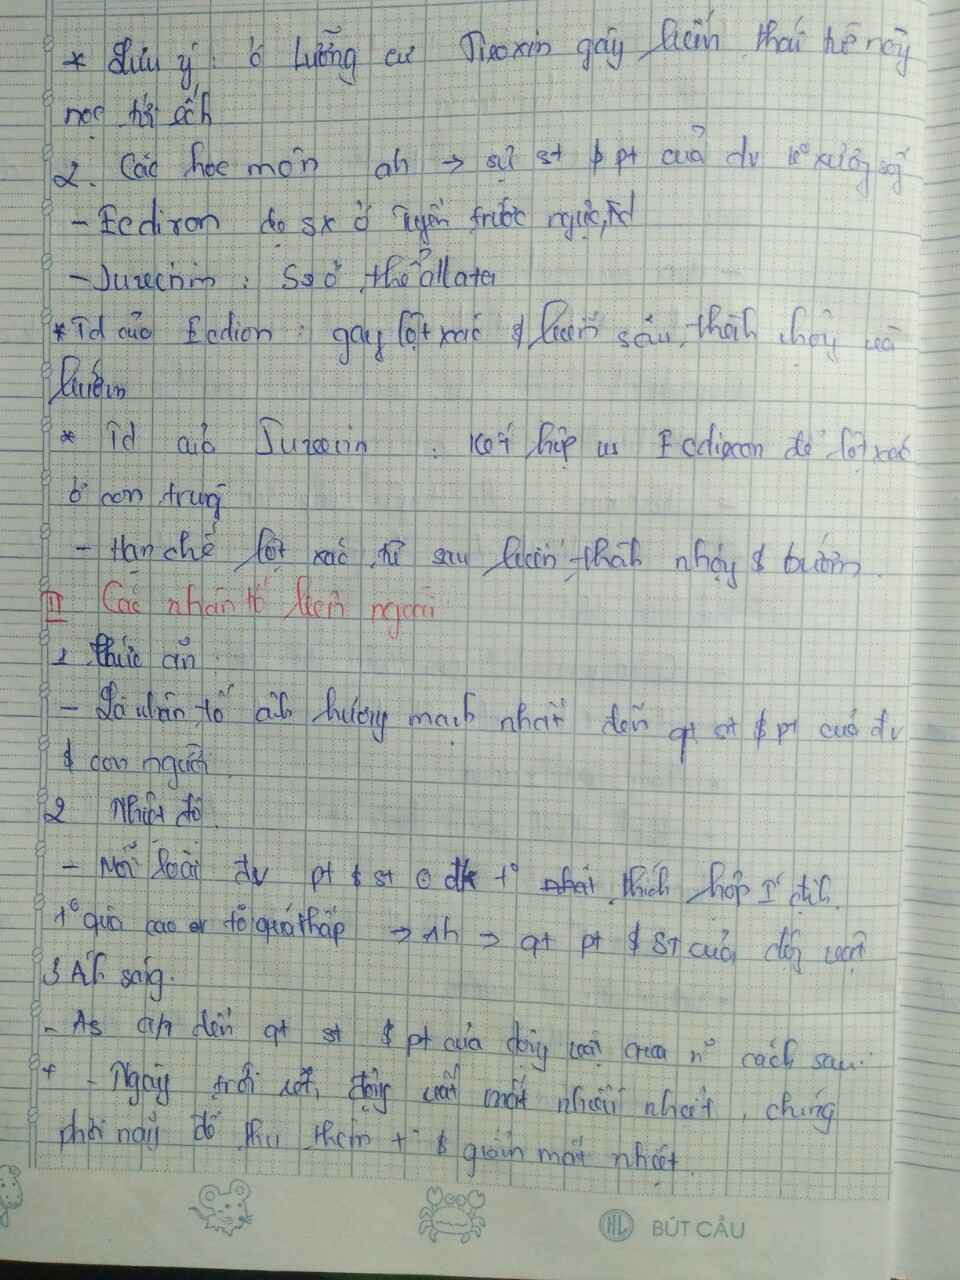 * Lưu ý : ở lưỡng cư Tiroxin gây biến thái từ nòng
nọc thành ếch
2. Các hoc môn ah → sự st & pt của đv k° xương sg
- Ecdixon do sx ở tuyến trước ngực, td
- Juvecnin : Sx ở thể allata
* Td của Ecdion : gây lột xác & biến sâu thành nhộng và
bướm
* Td của Juvecnin : Kết hợp vs Ecdixon để lột xác
ở con trung
- Hạn chế lột xác, từ sau biến thành nhộng & bướm.
II Các nhân tố bên ngoài
1 thức ăn
- Là nhân tố ảh hưởng mạnh nhất đến qt st & pt của đv
& con người.
2 Nhiệt độ
- Mỗi loài đv pt & st ở đk t° thích hợp I' địh.
t° quá cao or tº quá thấp → Ah → qt pt & ST của độg vật
3 Áh sáng.
- As ah đến qt st & pt của động vật qua n° cách sau:
+ - Ngày trời rét, động vật mất nhiều nhiệt, chúng
phơi nắng để thu thêm t° & giảm mất nhiệt.
HL BÚT CẦU